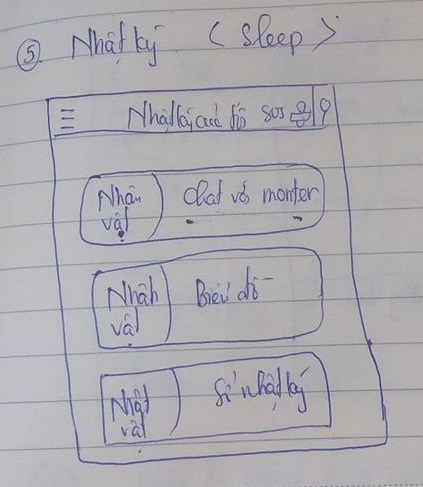 ⑤ Nhật ký < Sleep >
Nhật ký của tớ SOS
Nhân vật
Chat với monter
Nhân vật
Biểu đồ
Nhật vật
Sổ nhật ký